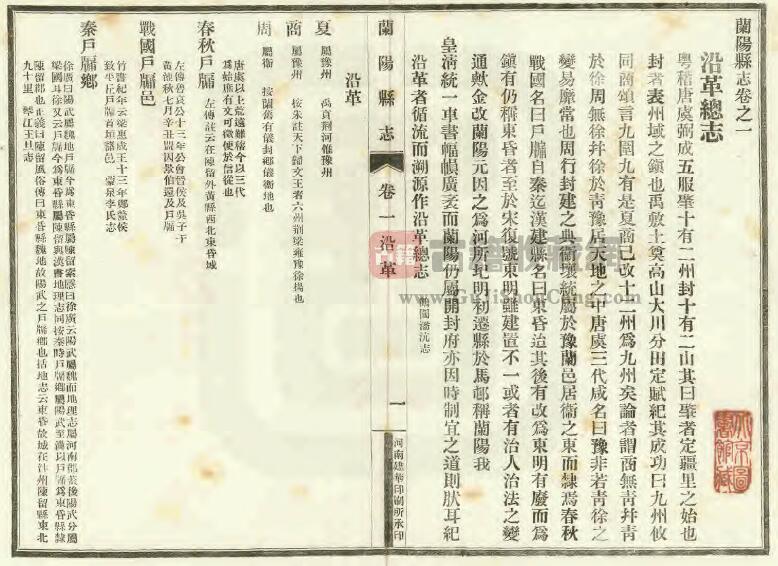 蘭陽縣志卷之一
沿革總志
粵稽唐虞弼成五服肇十有二州封十有二山其曰肇者定疆里之始也
封者表州域之鎮也禹敷土奠高山大川分田定賦紀其成功曰九州攸
同商頌言九圍九有是夏商已改十二州爲九州矣論者謂商無青幷青
於徐周無徐幷徐於青豫居天地之中唐虞三代咸名曰豫非若青徐之
變易靡常也周行封建之典衞壤統屬於豫蘭邑居衞之東而隸焉春秋
戰國名曰戶牖自秦迄漢建縣名曰東昏迨其後有改爲東明有廢而爲
鎮有仍稱東昏者至於宋復號東明雖建置不一或者有治人治法之變
通歟金改蘭陽元因之爲河所圮明初遷縣於馬邨稱蘭陽我
皇淸統一車書幅幀廣袤而蘭陽仍屬開封府亦因時制宜之道則肰耳紀
沿革者循流而溯源作沿革總志
鴨闌潘沆志
蘭陽縣志
卷一沿革
一
河南建華印刷所承印
沿革
夏
屬豫州 禹貢荆河惟豫州
商
屬豫州 按朱註天下歸文王者六州荆梁雍豫徐揚也
周
屬衞 按蘭舊有儀封鄉儀衞地也
唐虞以上荒遠難稽今以三代
爲始庶有文可徵便於信從也
春秋戶牖
左傳哀公十三年公會晉侯及吳子于
黃池秋七月辛丑盟囚景伯還及戶牖
左傳註云在陳留外黃縣西北東昏城
戰國戶牖邑
竹書紀年云梁惠成王十三年鄭釐侯
致平丘戶牖首垣諸邑 蒙泉李氏志
秦戶牖鄉
徐廣曰陽武魏地戶牖今爲東昏縣屬陳留索隱曰徐廣云陽武屬魏而地理志屬河南郡蓋後陽武分屬
梁國耳徐又云戶牖今爲東昏縣屬陳留與漢書地理志同按秦時戶牖鄉屬陽武至漢以戶牖爲東昏縣隸
陳留郡也正義曰陳留風俗傳曰東昏縣魏地故陽武之戶牖鄉也括地志云東昏故城在汴州陳留縣東北
九十里 王旦志
古籍收藏網
www.GuJiShouCang.com